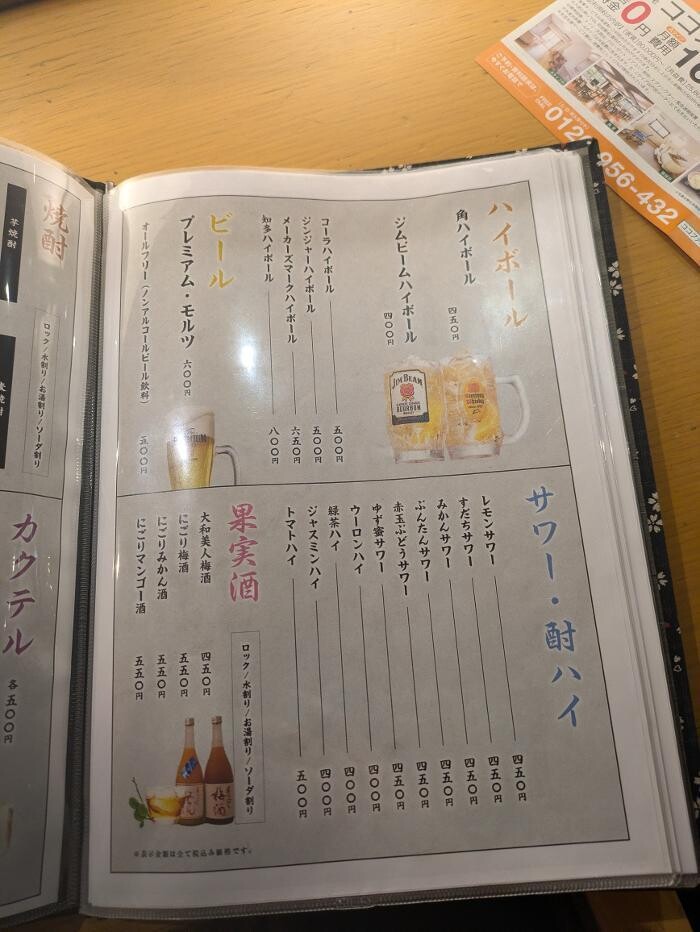 ハイボール
角ハイボール 四五〇円
ジムビームハイボール 四〇〇円
コーラハイボール 五〇〇円
ジンジャーハイボール 五〇〇円
メーカーズマークハイボール 六五〇円
知多ハイボール 八〇〇円
JIM BEAM
BOURBON
ビール
プレミアム・モルツ 六〇〇円
オールフリー（ノンアルコールビール飲料） 五〇〇円
サワー・酎ハイ
レモンサワー 四五〇円
すだちサワー 四五〇円
みかんサワー 四五〇円
ぶんたんサワー 四五〇円
赤玉ぶどうサワー 四五〇円
ゆず蜜サワー 四五〇円
ウーロンハイ 四〇〇円
緑茶ハイ 四〇〇円
ジャスミンハイ 四〇〇円
トマトハイ 五〇〇円
果実酒
ロック/水割り/お湯割り/ソーダ割り
大和美人梅酒 四五〇円
にごり梅酒 五五〇円
にごりみかん酒 五五〇円
にごりマンゴー酒 五五〇円
梅酒
※表示金額は全て税込み価格です。
焼酎
芋焼酎
ロック/水割り/お湯割り/ソーダ割り
カクテル
各五〇〇円
0円
月額
費用
956-432